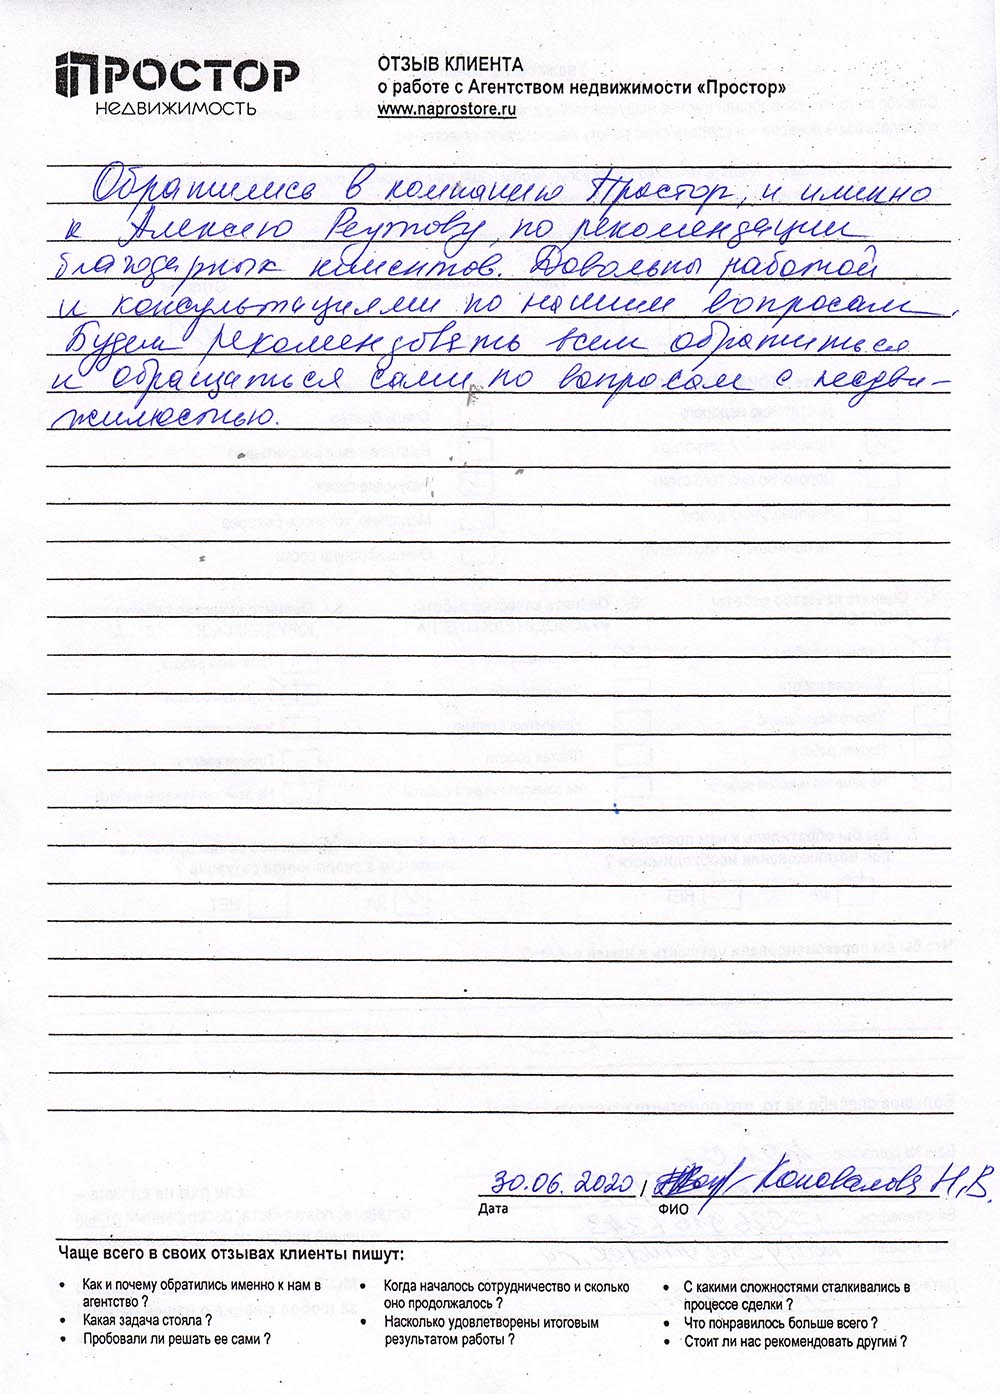 ПРОСТОР
НЕДВИЖИМОСТЬ
ОТЗЫВ КЛИЕНТА
о работе с Агентством недвижимости «Простор»
www.naprostore.ru
Обратились в компанию Простор, и именно
к Алексею Реутову, по рекомендации
благодарных клиентов. Довольны работой
и консультациями по нашим вопросам.
Будем рекомендовать всем обратиться
и обращаться сами по вопросам с недви-
жимостью.
30.06.2020 / Коновалова Н.В.
Дата ФИО
Чаще всего в своих отзывах клиенты пишут:
• Как и почему обратились именно к нам в
агентство ?
• Какая задача стояла ?
• Пробовали ли решать ее сами ?
• Когда началось сотрудничество и сколько
оно продолжалось ?
• Насколько удовлетворены итоговым
результатом работы ?
• С какими сложностями сталкивались в
процессе сделки ?
• Что понравилось больше всего ?
• Стоит ли нас рекомендовать другим ?